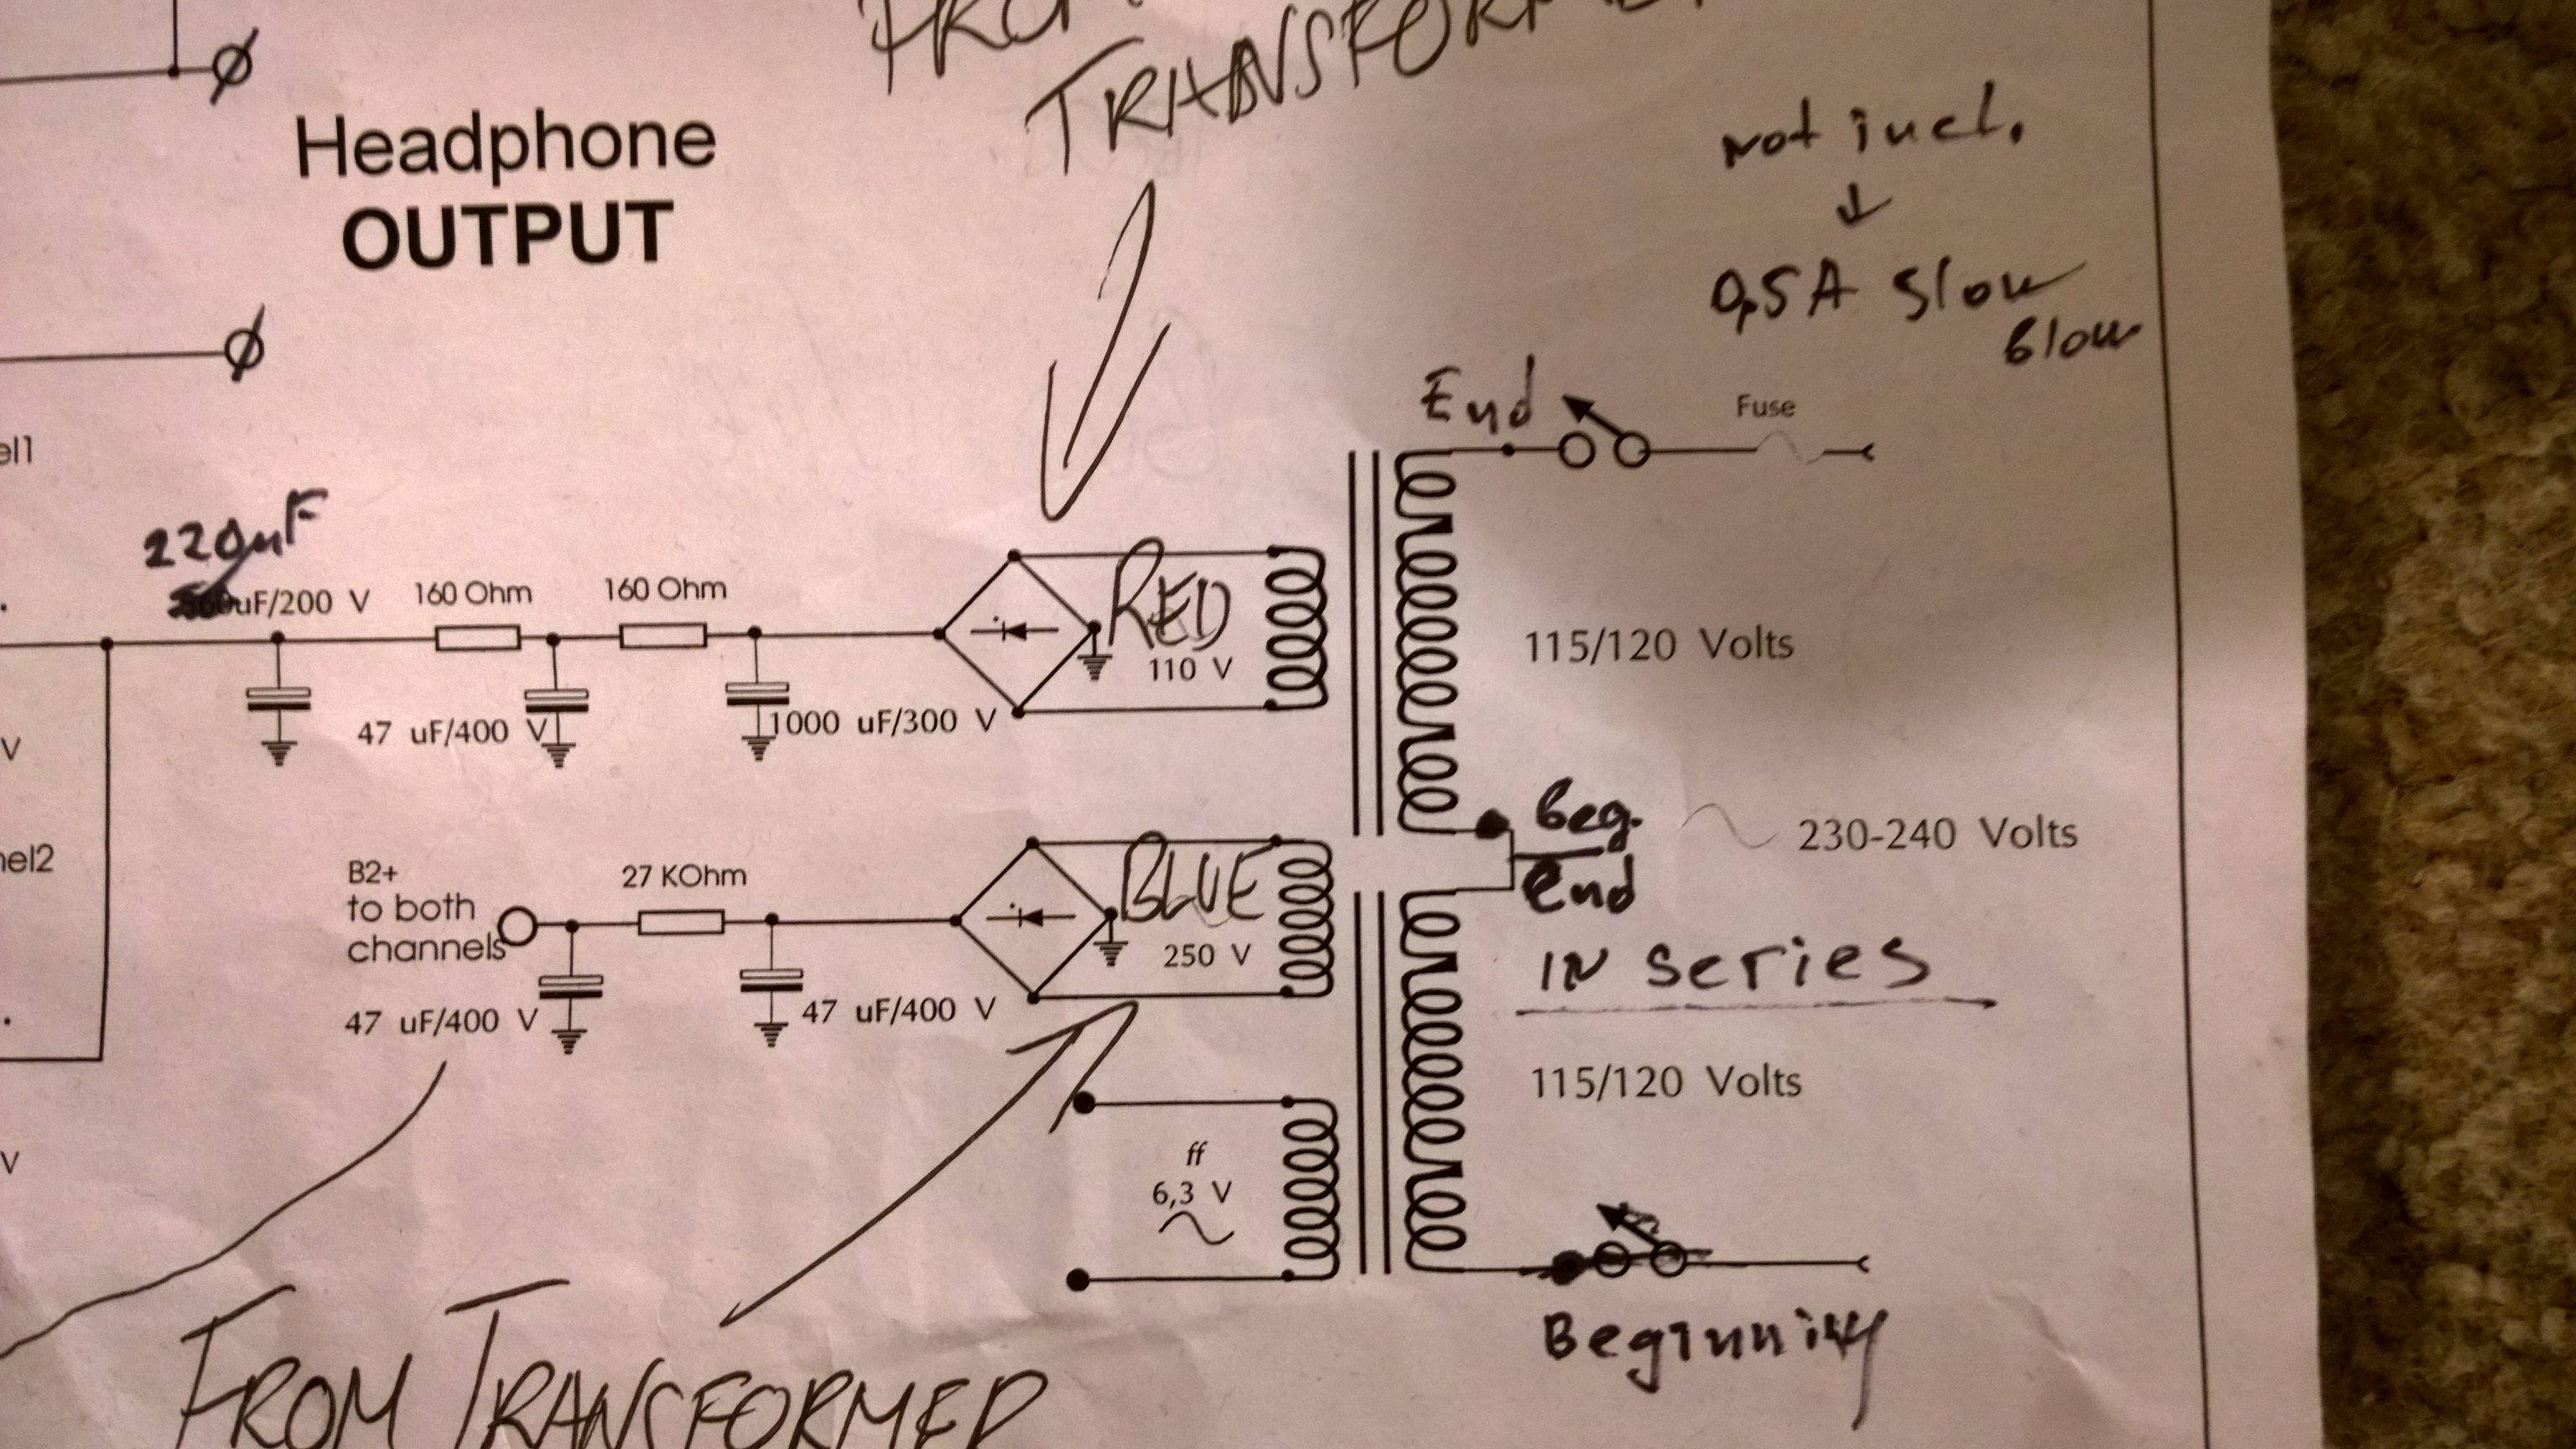 TRANSFORMER
Not incl.
0,5A Slow
Blow
Headphone
OUTPUT
End
Fuse
el1
220uF
uF/200 V
160 Ohm
160 Ohm
RED
110 V
115/120 Volts
47 uF/400 V
1000 uF/300 V
V
Beg.
End
230-240 Volts
nel2
B2+
to both
channels
27 KOhm
BLUE
250 V
IN series
47 uF/400 V
47 uF/400 V
115/120 Volts
V
ff
6,3 V
Beginning
FROM TRANSFORMER